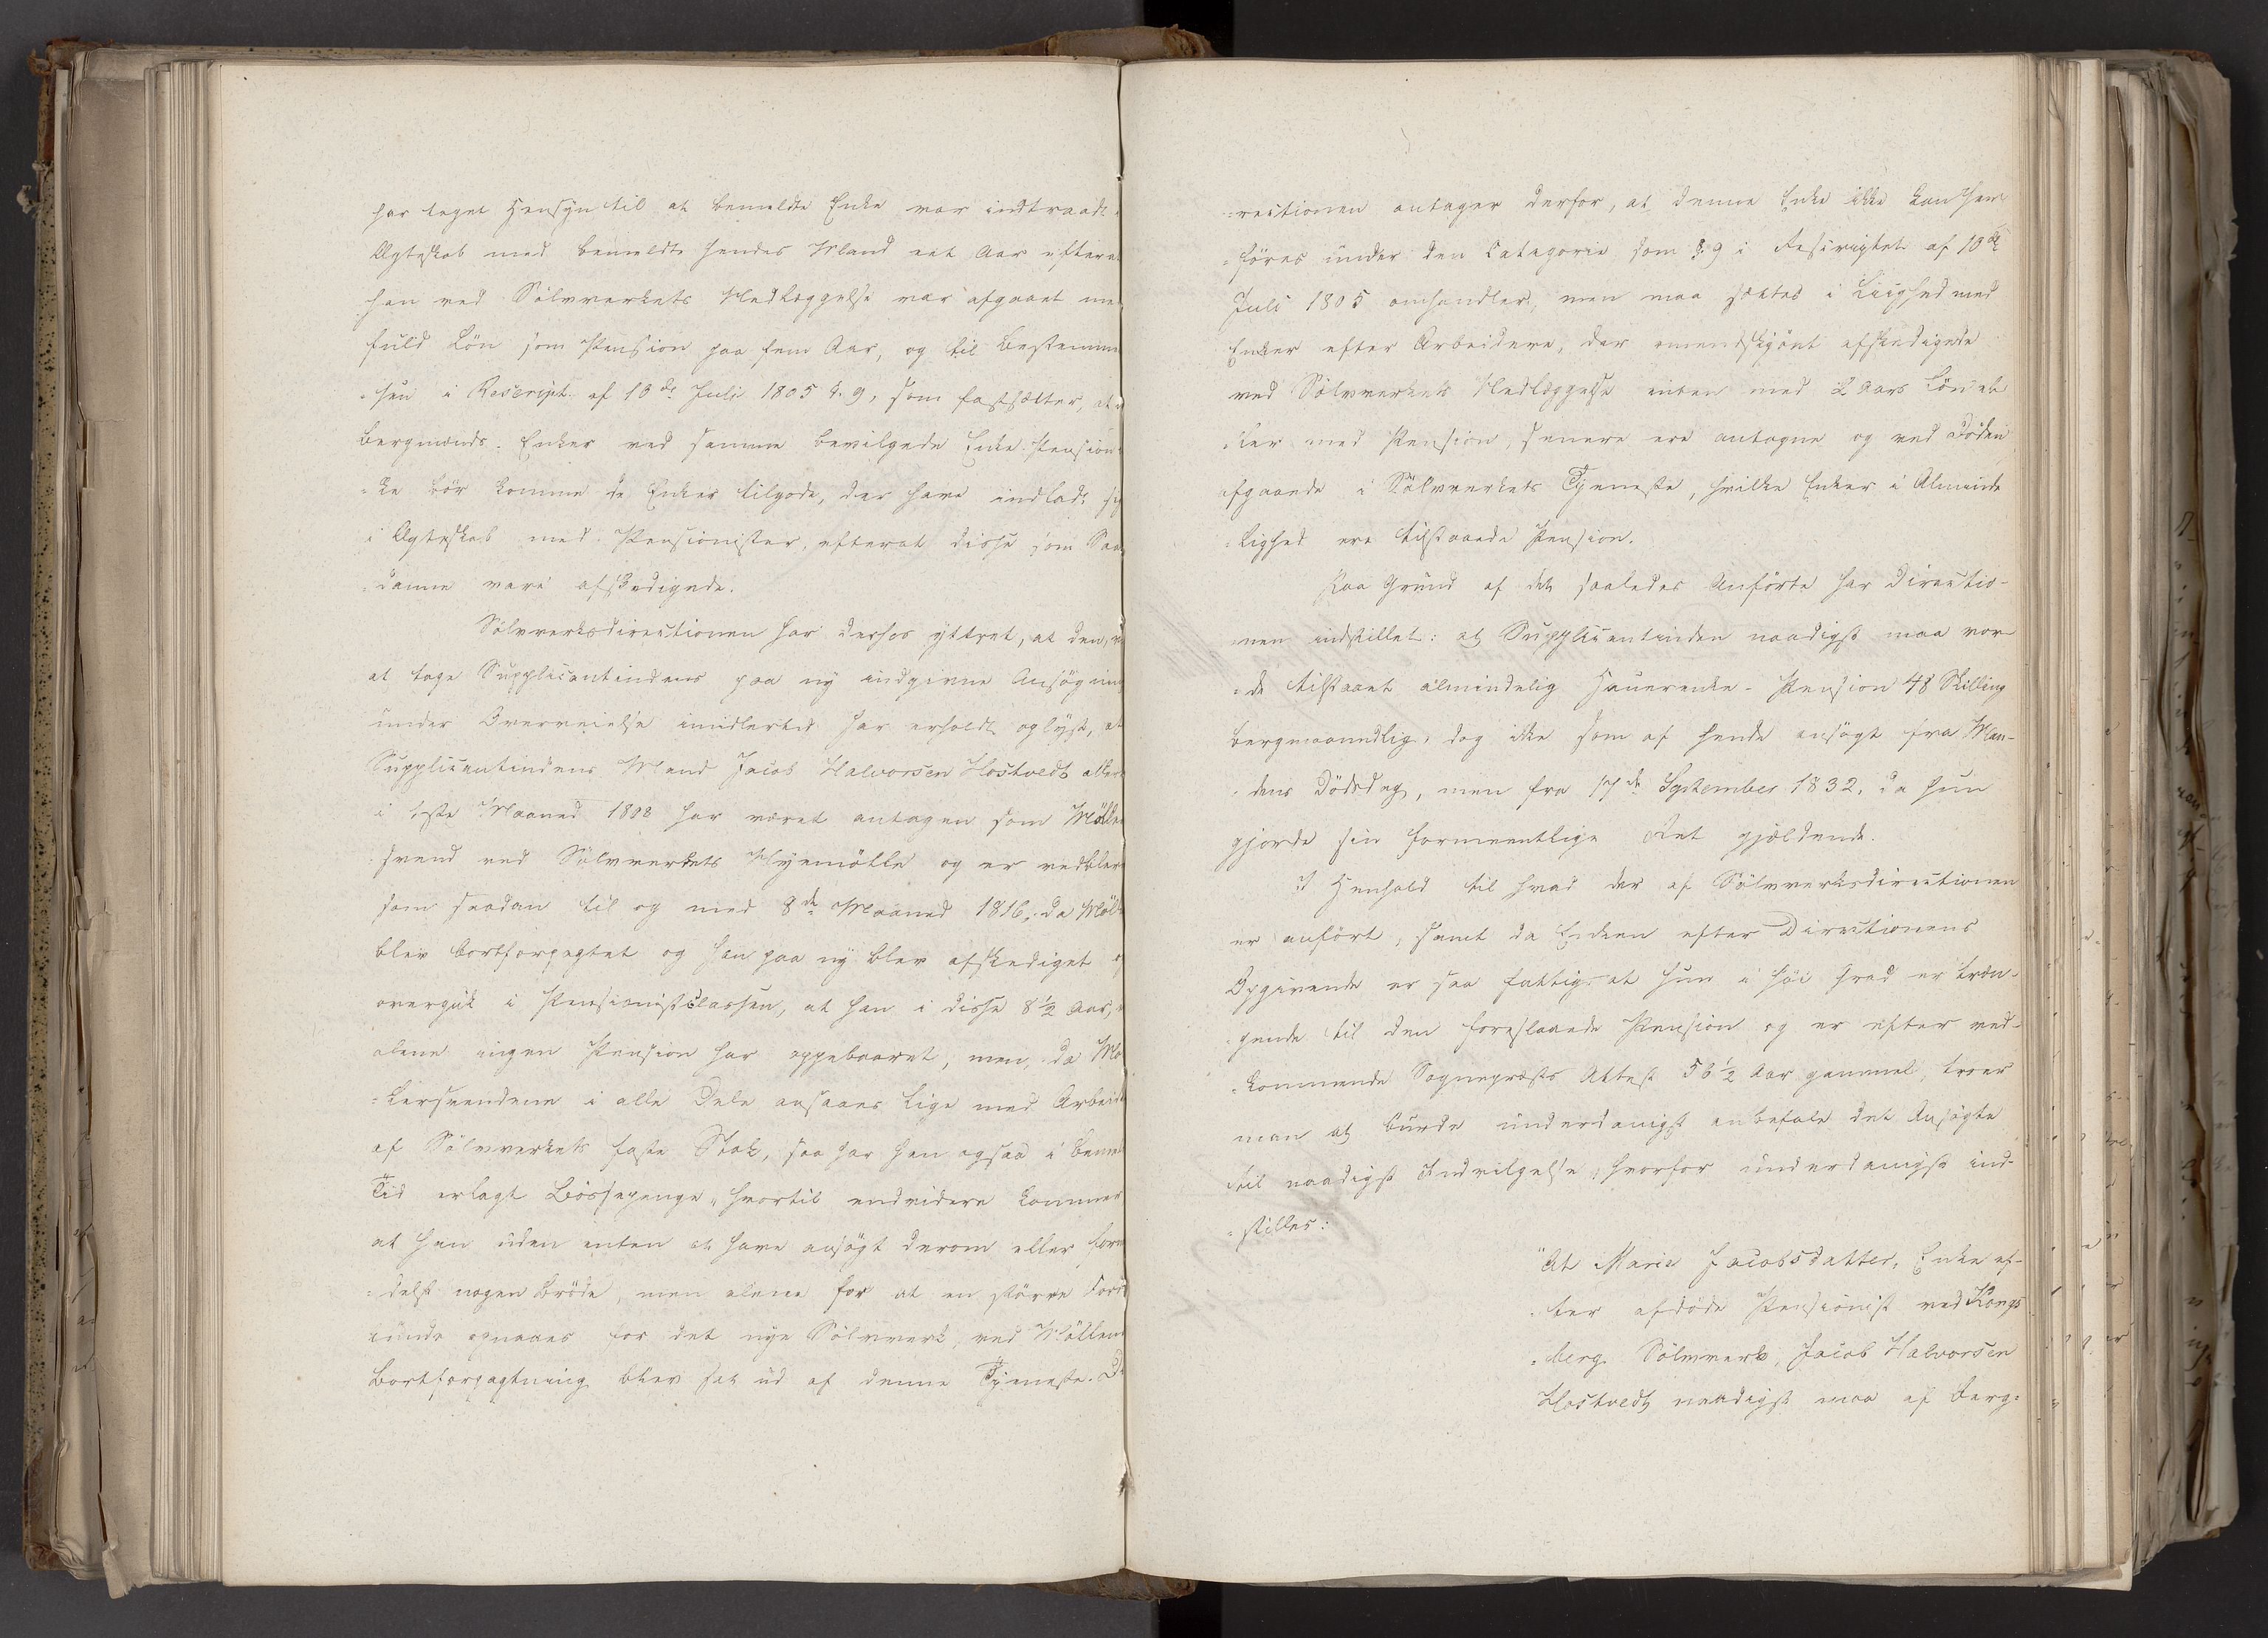 har taget Hensyn til at bemeldte Enke var indtraadt i
Ægteskab med bemeldte hendes Mand eet Aar efterat
han ved Sølvverkets Nedlæggelse var afgaaet med
fuld Løn som Pension paa fem Aar, og til Bestemmel
-sen i Rescript af 10de Juli 1805 §. 9, som fastsætter, at
Bergmands-Enker ved samme bevilgede Enke-Pension
-ke bør komme de Enker tilgode, der have indladt sig
i Ægteskab med Pensionister, efterat disse som Saa
-danne vare afskedigede.
Sølvverksdirectionen har derhos yttret, at den, ved
at tage Supplicantindens paa ny indgivne Ansøgning
under Overveielse imidlertid har erholdt oplyst, at
Supplicantindens Mand Jacob Halvorsen Hostvedt allere
i 1ste Maaned 1808 har været antagen som Mølle
-svend ved Sølvverkets Myemølle og er vedbleven
som saadan til og med 8de Maaned 1816, da Møllen
blev bortforpagtet og han paa ny blev afskediget og
overgik i Pensionistclassen, at han i disse 8½ Aar, ei
alene ingen Pension har oppebaaret, men, da Mø
-lersvendene i alle Dele ansaaes lige med Arbeide
af Sølvverkets faste Stok, saa har han ogsaa i bemel
Tid erlagt Bøssepenge, hvortil endvidere kommer
at han uden enten at have ansøgt derom eller form
-delst nogen Brøde, men alene for at en større Ford
kunde opnaaes for det nye Sølvverk, ved Møllens
Bortforpagtning blev sat ud af denne Tjeneste. Di
-rectionen antager derfor, at denne Enke ikke kan hen-
-føres under den Categorie som §. 9 i Rescriptet af 10de
Juli 1805 omhandler, men maa sættes i Liighed med
Enker efter Arbeidere, der omendskjønt afskedigede
ved Sølvverkets Nedlæggelse enten med 2 Aars Løn el
-ler med Pension, senere ere antagne og ved Døden
afgaaede i Sølvverkets Tjeneste, hvilke Enker i Alminde
-lighed ere tilstaaede Pension.
Paa Grund af det saaledes Anførte har Directio-
nen indstillet: at Supplicantinden naadigst maa vor-
-de tilstaaet almindelig Hauerenke-Pension 48 Skilling
bergmaanedlig, dog ikke som af hende ansøgt fra Man-
-dens Dødsdag, men fra 17de September 1832, da hun
gjorde sin formeentlige Ret gjældende.
I Henhold til hvad der af Sølvverksdirectionen
er anført, samt da Enken efter Directionens
Opgivende er saa fattig at hun i høi Grad er træn-
-gende til den foreslaaede Pension og er efter ved-
-kommende Sognepræsts Attest 56½ Aar gammel, troer
man at burde underdanigst anbefale det Ansøgte
til naadigst Indvilgelse, hvorfor underdanigst ind-
-stilles:
"At Marie Jacobsdatter, Enke ef-
-ter afdøde Pensionist ved Kongs
-berg Sølvverk, Jacob Halvorsen
Hostvedt naadigst maa af Berg-